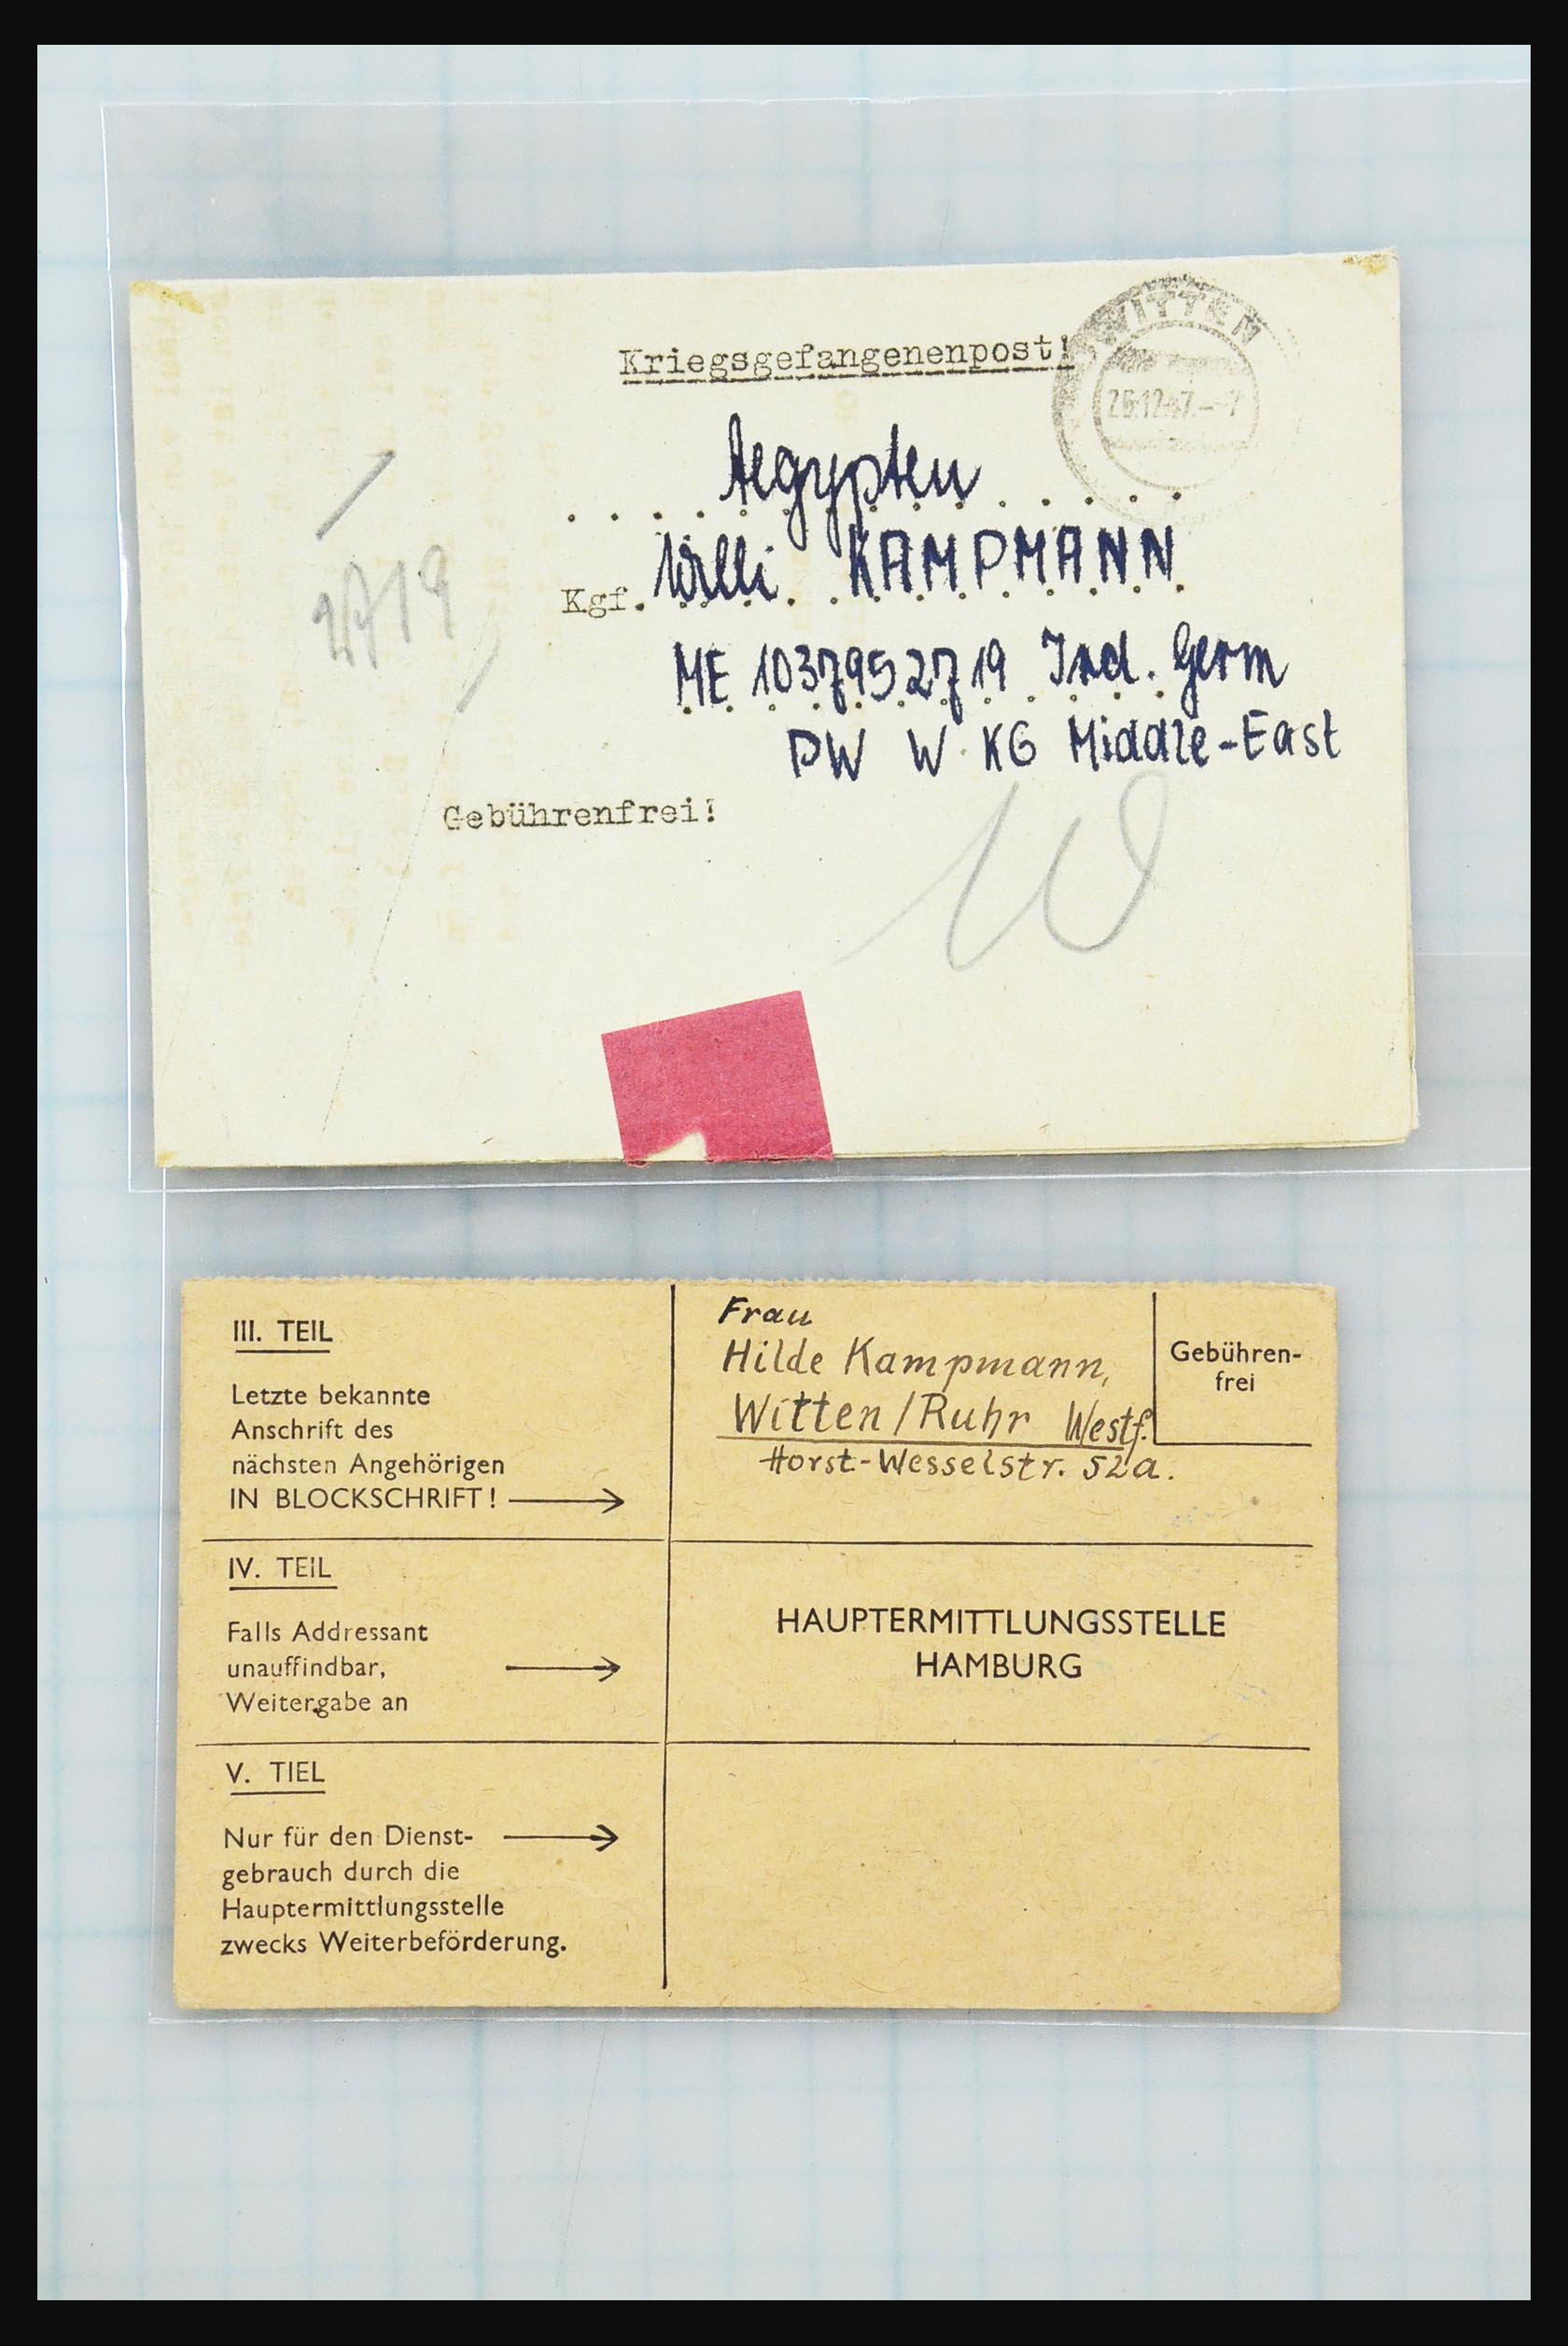 Kriegsgefangenenpost!
WITTEN
Aegypten
Kgf. Willi KAMPMANN
ME 1037952719 Ind. Germ
PW W. KG Middle-East
2719
Gebührenfrei!
III. TEIL
Letzte bekannte
Anschrift des
nächsten Angehörigen
IN BLOCKSCHRIFT!
Frau
Hilde Kampmann,
Witten/Ruhr Westf.
Horst-Wesselstr. 52a.
Gebühren-
frei
IV. TEIL
Falls Addressant
unauffindbar,
Weitergabe an
HAUPTERMITTLUNGSSTELLE
HAMBURG
V. TIEL
Nur für den Dienst-
gebrauch durch die
Hauptermittlungsstelle
zwecks Weiterbeförderung.